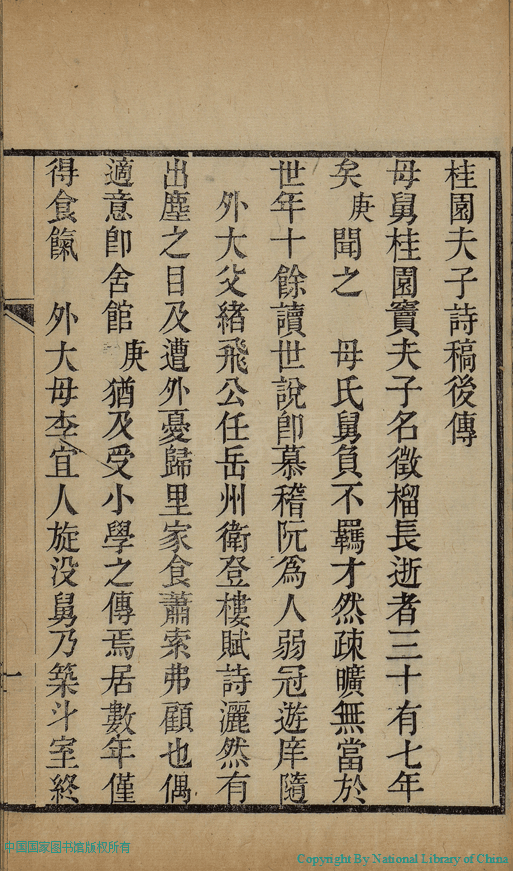 桂園夫子詩稿後傳
母舅桂園竇夫子名徵榴長逝者三十有七年
矣庚聞之　母氏舅負不羈才然疎曠無當於
世年十餘讀世說卽慕稽阮為人弱冠遊庠隨
外大父緒飛公任岳州衛登樓賦詩灑然有
出塵之目及遭外憂歸里家食蕭索弗顧也偶
適意卽舍館庚猶及受小學之傳焉居數年僅
得食餼　外大母李宜人旋没舅乃築斗室終
一
中国国家图书馆版权所有
Copyright By National Library of China